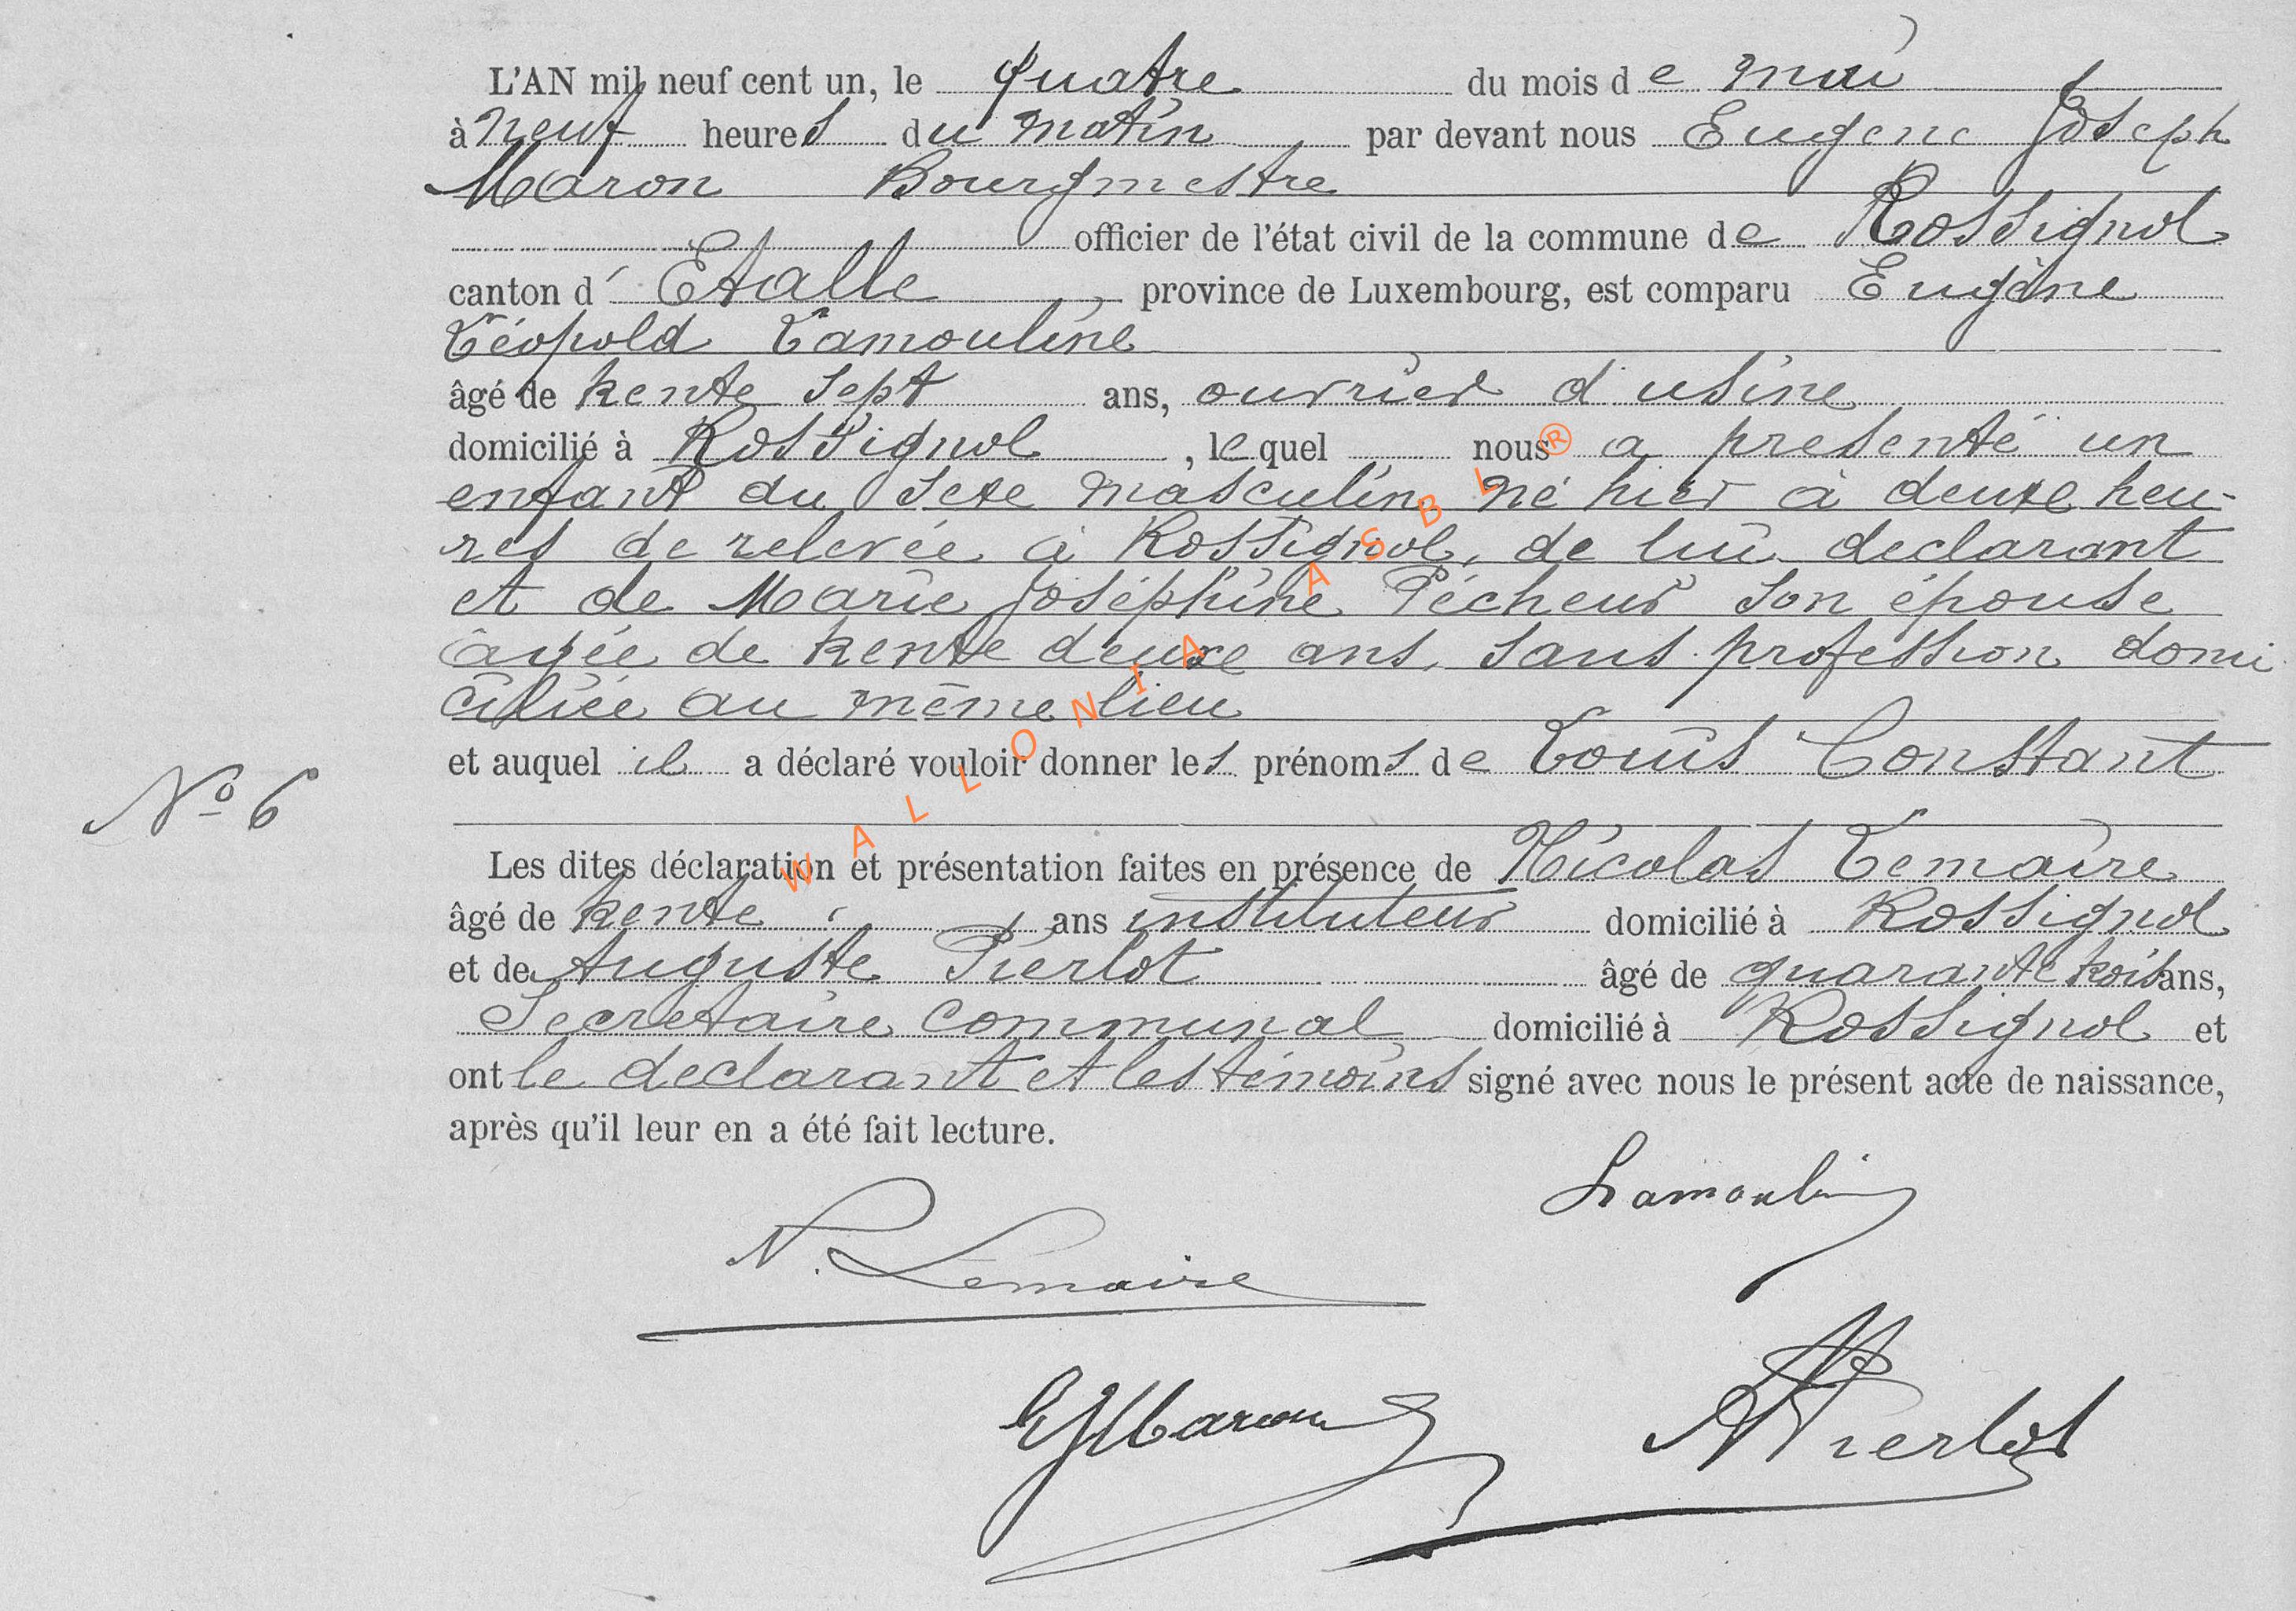 L'AN mil neuf cent un, le quatre du mois de mai
à neuf heures du matin par devant nous Eugene Joseph
Maron Bourgmestre
officier de l'état civil de la commune de Rossignol
canton d'Etalle, province de Luxembourg, est comparu Eugène
Léopold Lamouline
âgé de trente sept ans, ouvrier d'usine
domicilié à Rossignol, lequel nous a presenté un
enfant du sexe masculin né hier à deuxe heu-
res de relevée à Rossignol, de lui declarant
et de Marie Joséphine Pécheur son épouse
âgée de trente deuxe ans, sans profession domi
ciliée au même lieu
et auquel il a déclaré vouloir donner les prénoms de Louis Constant
Nº 6
Les dites déclaration et présentation faites en présence de Nicolas Lemaire
âgé de trente ans instituteur domicilié à Rossignol
et de Auguste Pierlot âgé de quarante trois ans,
Secretaire communal domicilié à Rossignol et
ont le declarant et les témoins signé avec nous le présent acte de naissance,
après qu'il leur en a été fait lecture.
Lamoulin
N. Lemaire
EJMaron
A Pierlot
WALLONIA ASBL ®